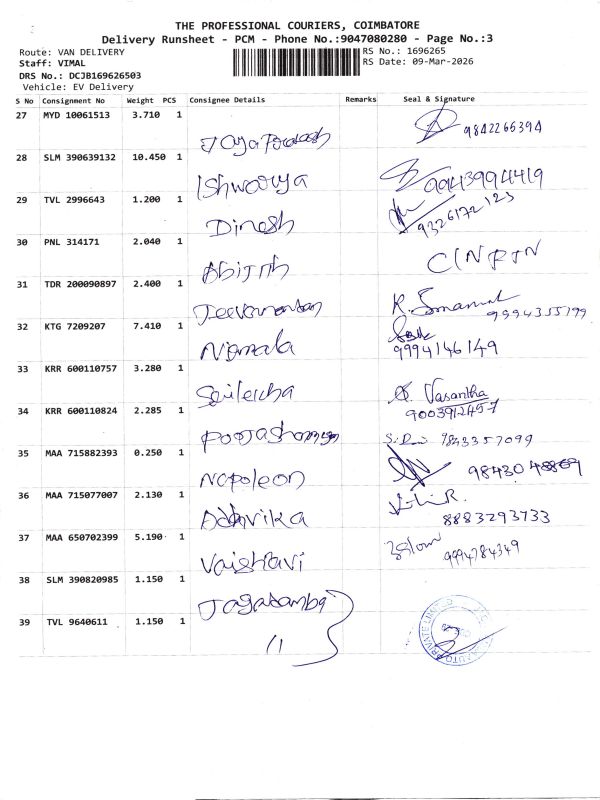 THE PROFESSIONAL COURIERS, COIMBATORE
Delivery Runsheet - PCM - Phone No.:9047080280 - Page No.:3
Route: VAN DELIVERY
RS No.: 1696265
Staff: VIMAL
RS Date: 09-Mar-2026
DRS No.: DCJB169626503
Vehicle: EV Delivery
S No Consignment No Weight PCS Consignee Details Remarks Seal & Signature
27 MYD 10061513 3.710 1
9842266394
28 SLM 390639132 10.450 1
Ishwarya 9943994419
29 TVL 2996643 1.200 1
Dinesh 9326172123
30 PNL 314171 2.040 1
Abijith
31 TDR 200090897 2.400 1
9994355199
32 KTG 7209207 7.410 1
Nirmala 9994146149
33 KRR 600110757 3.280 1
Vasantha
34 KRR 600110824 2.285 1
9003912457
9843357099
35 MAA 715882393 0.250 1
Napoleon
36 MAA 715077007 2.130 1
Advika 8883293733
37 MAA 650702399 5.190 1
Vaishnavi 9994784349
38 SLM 390820985 1.150 1
Jagadamba
39 TVL 9640611 1.150 1
11